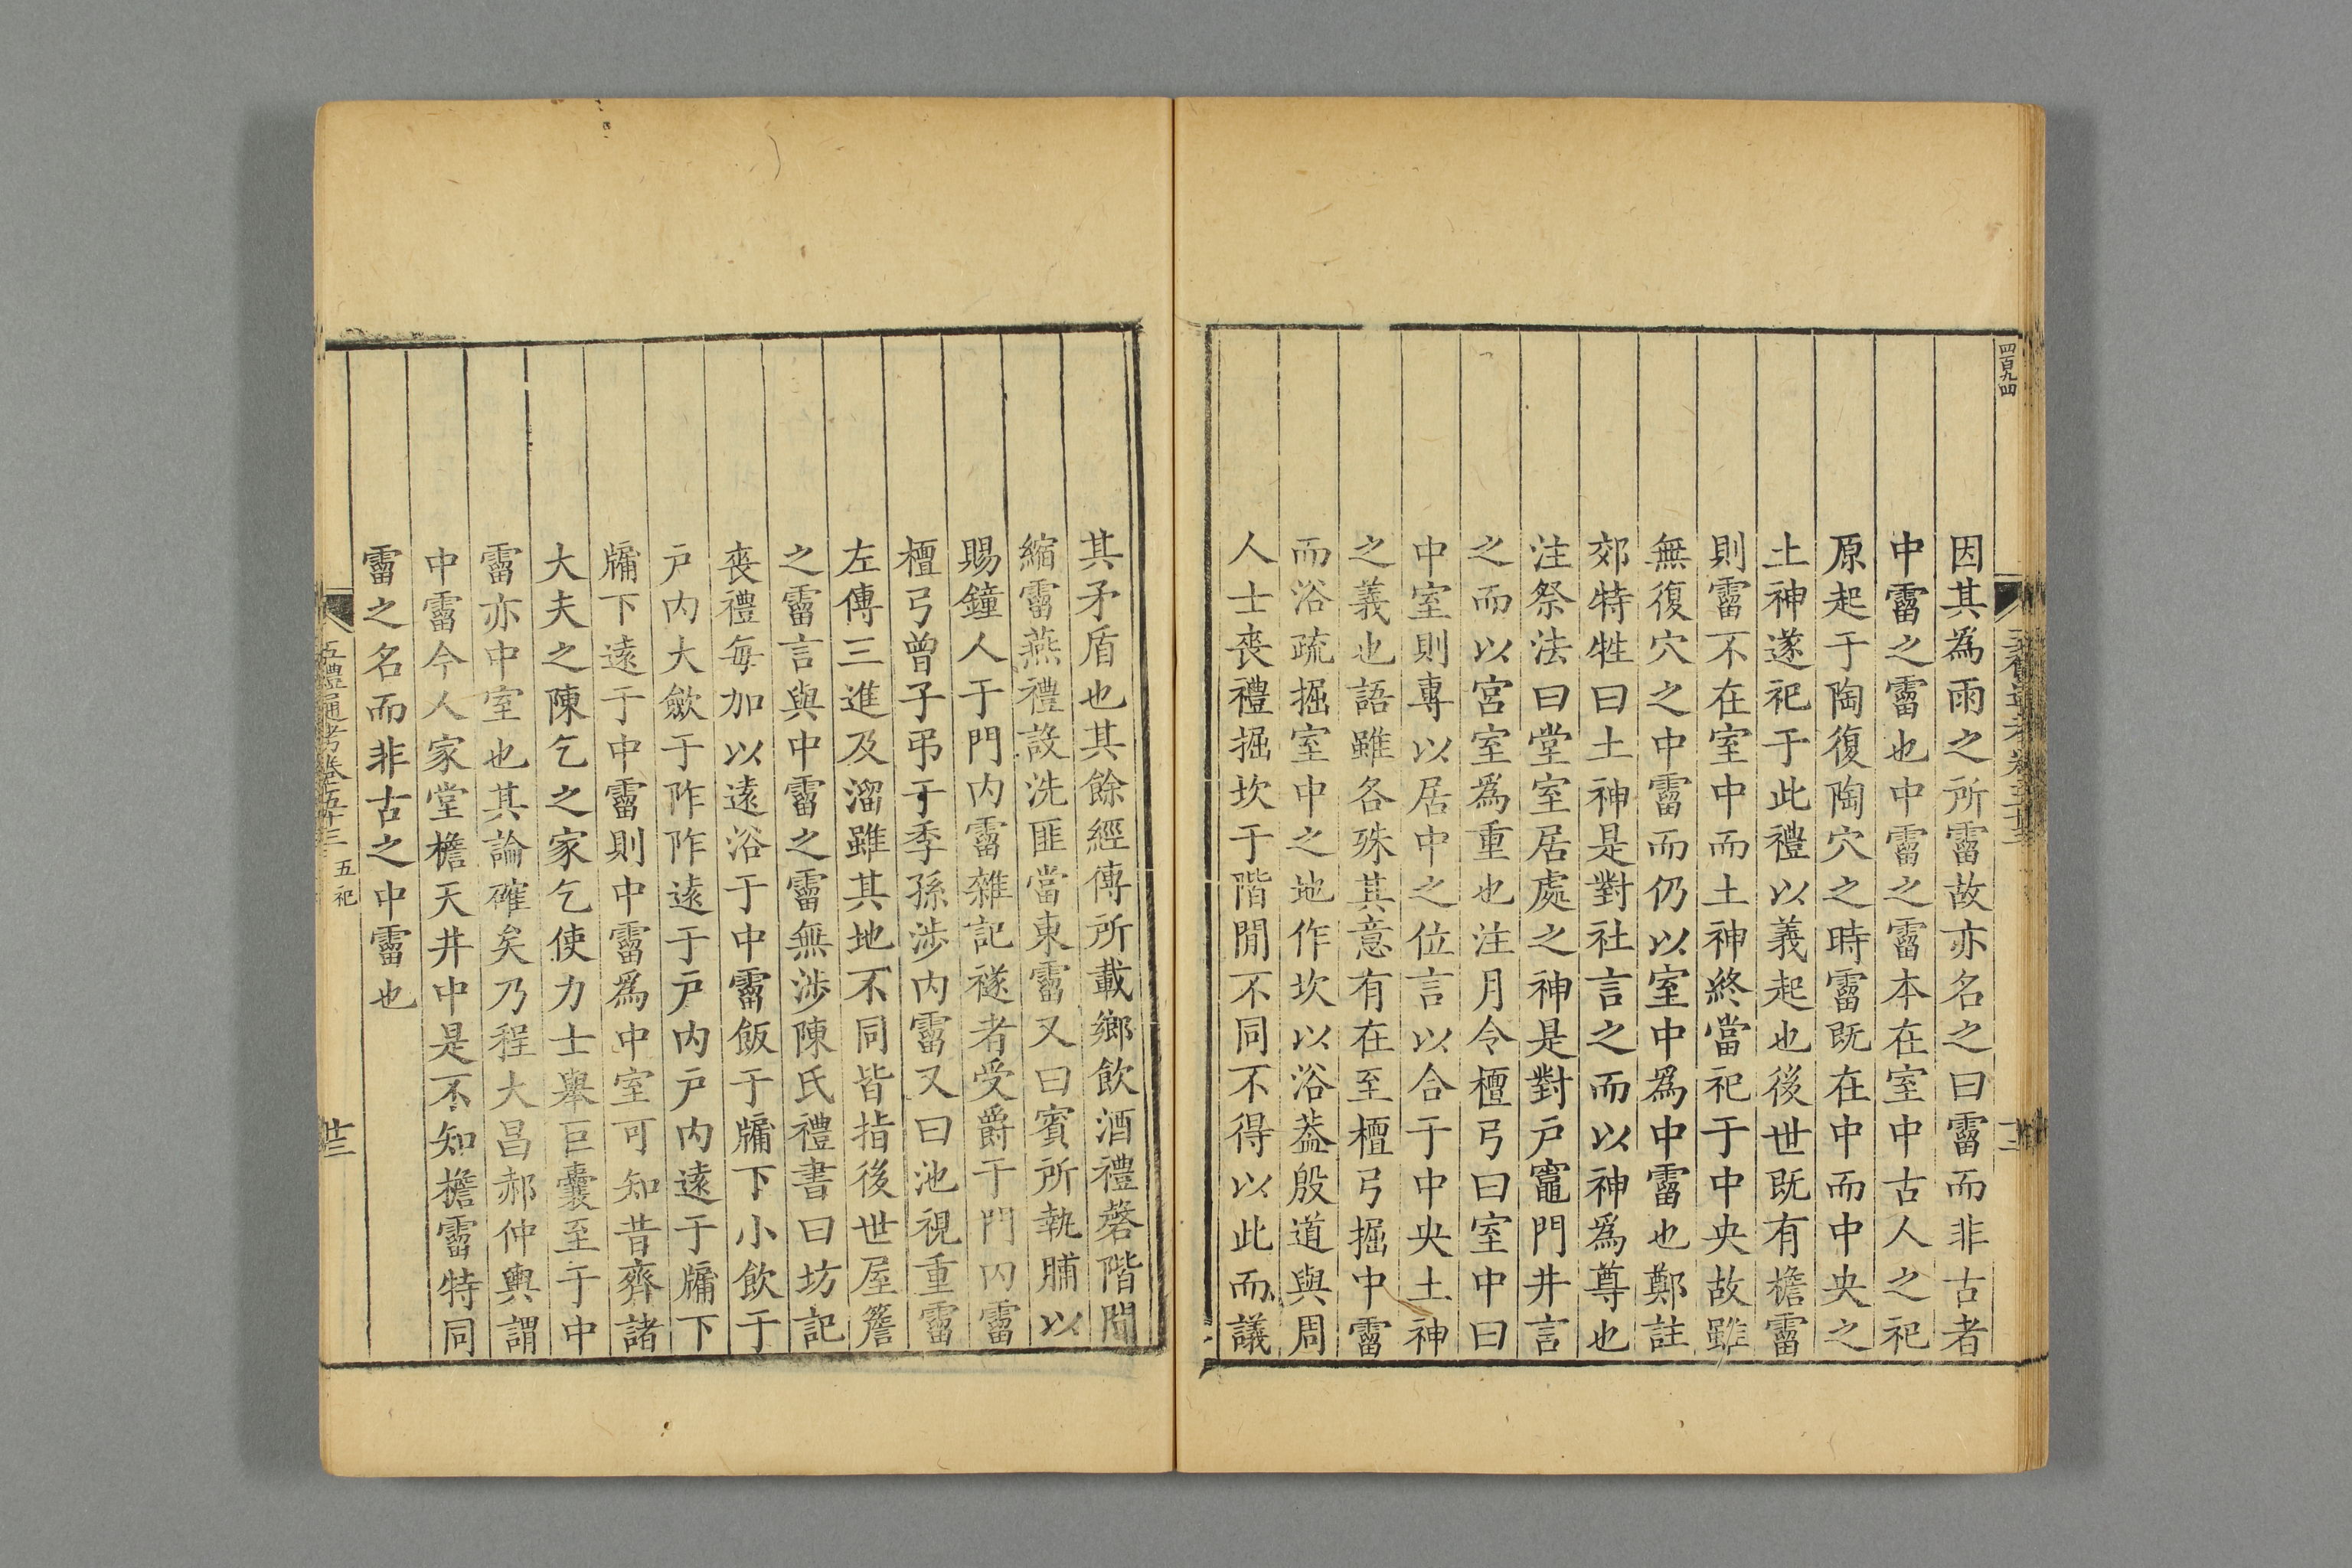 四百九四
因其為雨之所霤故亦名之曰霤而非古者
中霤之霤也中霤之霤本在室中古人之祀
原起于陶復陶穴之時霤既在中而中央之
土神遂祀于此禮以義起也後世既有檐霤
則霤不在室中而土神終當祀于中央故雖
無復穴之中霤而仍以室中爲中霤也鄭註
郊特牲曰土神是對社言之而以神爲尊也
注祭法曰堂室居處之神是對戶竈門井言
之而以宮室爲重也注月令檀弓曰室中曰
中室則專以居中之位言以合于中央土神
之義也語雖各殊其意有在至檀弓掘中霤
而浴疏掘室中之地作坎以浴葢殷道與周
人士喪禮掘坎于階閒不同不得以此而議
其矛盾也其餘經傳所載鄉飲酒禮磬階閒
縮霤燕禮設洗匪當東霤又曰賓所執脯以
賜鐘人于門内霤雜記襚者受爵于門内霤
檀弓曾子弔于季孫涉内霤又曰池視重霤
左傳三進及溜雖其地不同皆指後世屋簷
之霤言與中霤之霤無涉陳氏禮書曰坊記
喪禮每加以遠浴于中霤飯于牖下小飲于
戶内大歛于阼阼遠于戶内戶内遠于牖下
牖下遠于中霤則中霤爲中室可知昔齊諸
大夫之陳乞之家乞使力士舉巨囊至于中
霤亦中室也其論確矣乃程大昌郝仲輿謂
中霤今人家堂檐天井中是不知檐霤特同
霤之名而非古之中霤也
五禮通考卷五十三 五祀 廿三